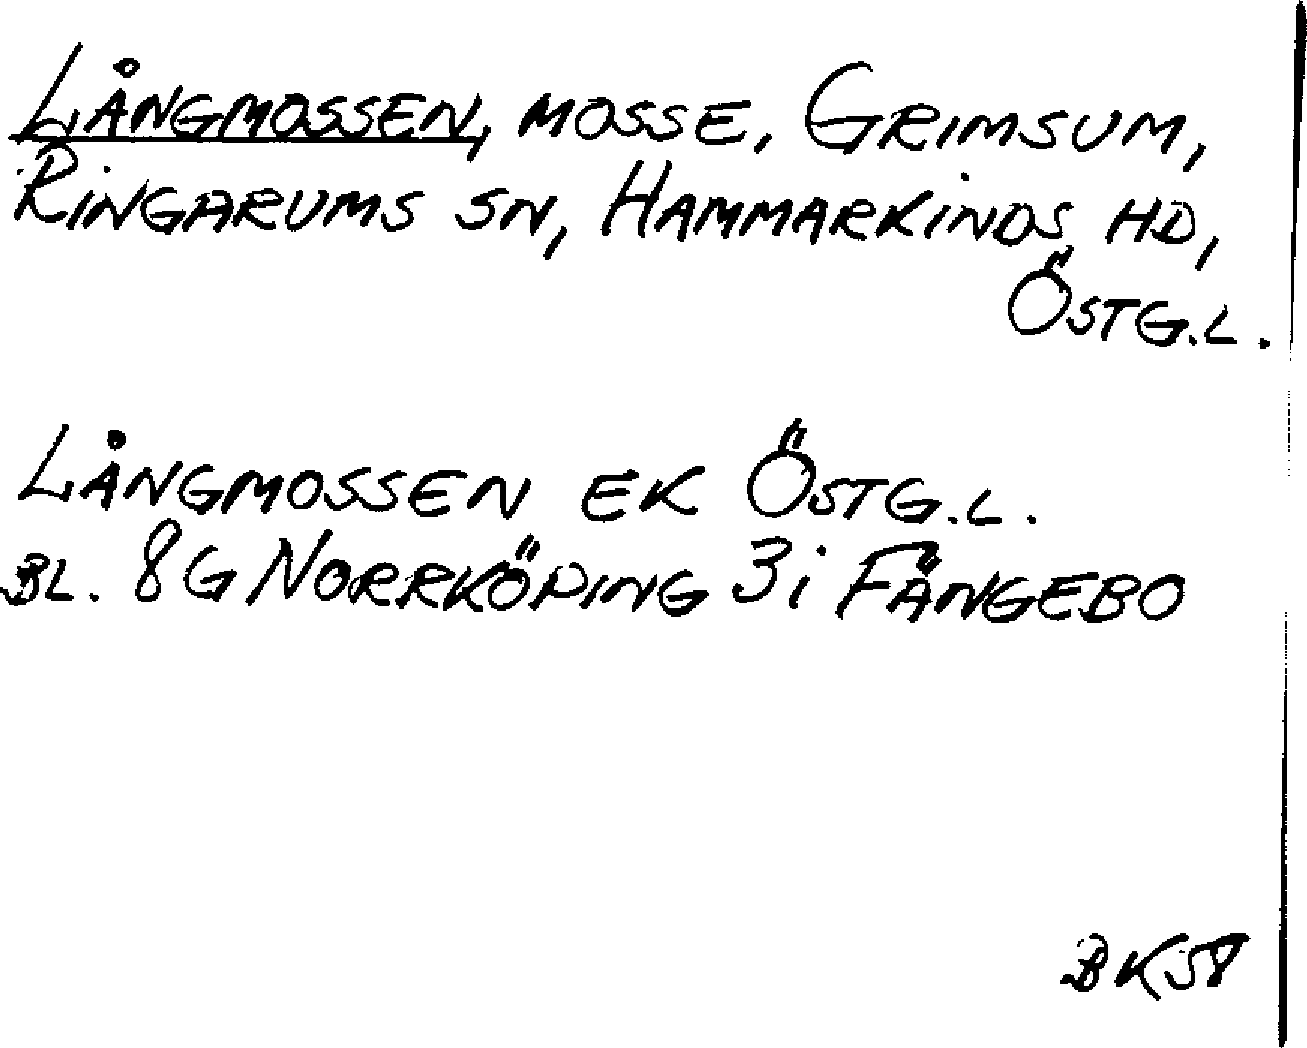 LÅNGMOSSEN, MOSSE, GRIMSUM,
RINGARUMS SN, HAMMARKINDS HD,
ÖSTG.L.
LÅNGMOSSEN EK ÖSTG.L.
BL. 8G NORRKÖPING 3i FÄNGEBO